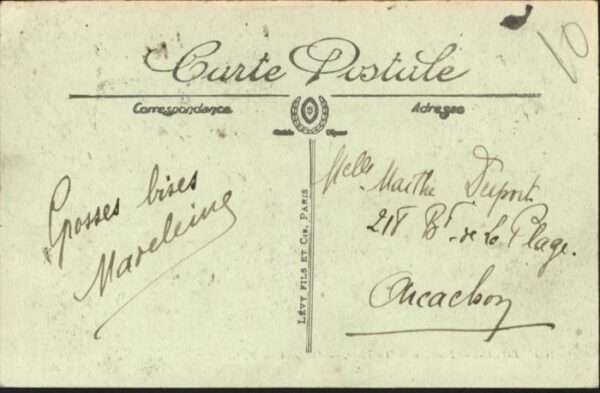 10
Carte Postale
Correspondance
Adresse
Grosses bises
Madeleine
LÉVY FILS ET CIE, PARIS
Melle Marthe Duport
217 Bd de la Plage.
Arcachon